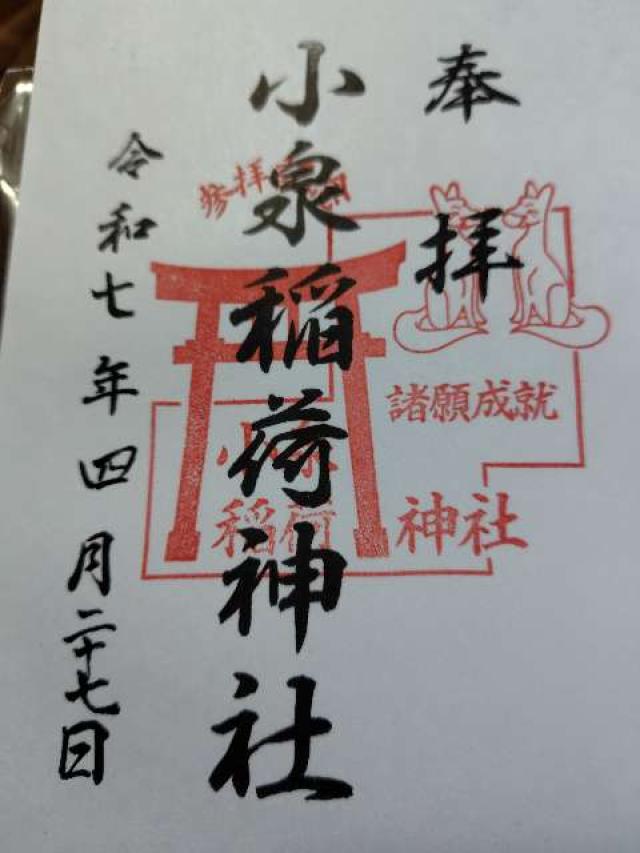 奉拝
小泉稲荷神社
令和七年四月二十七日
諸願成就
小泉
稲荷神社